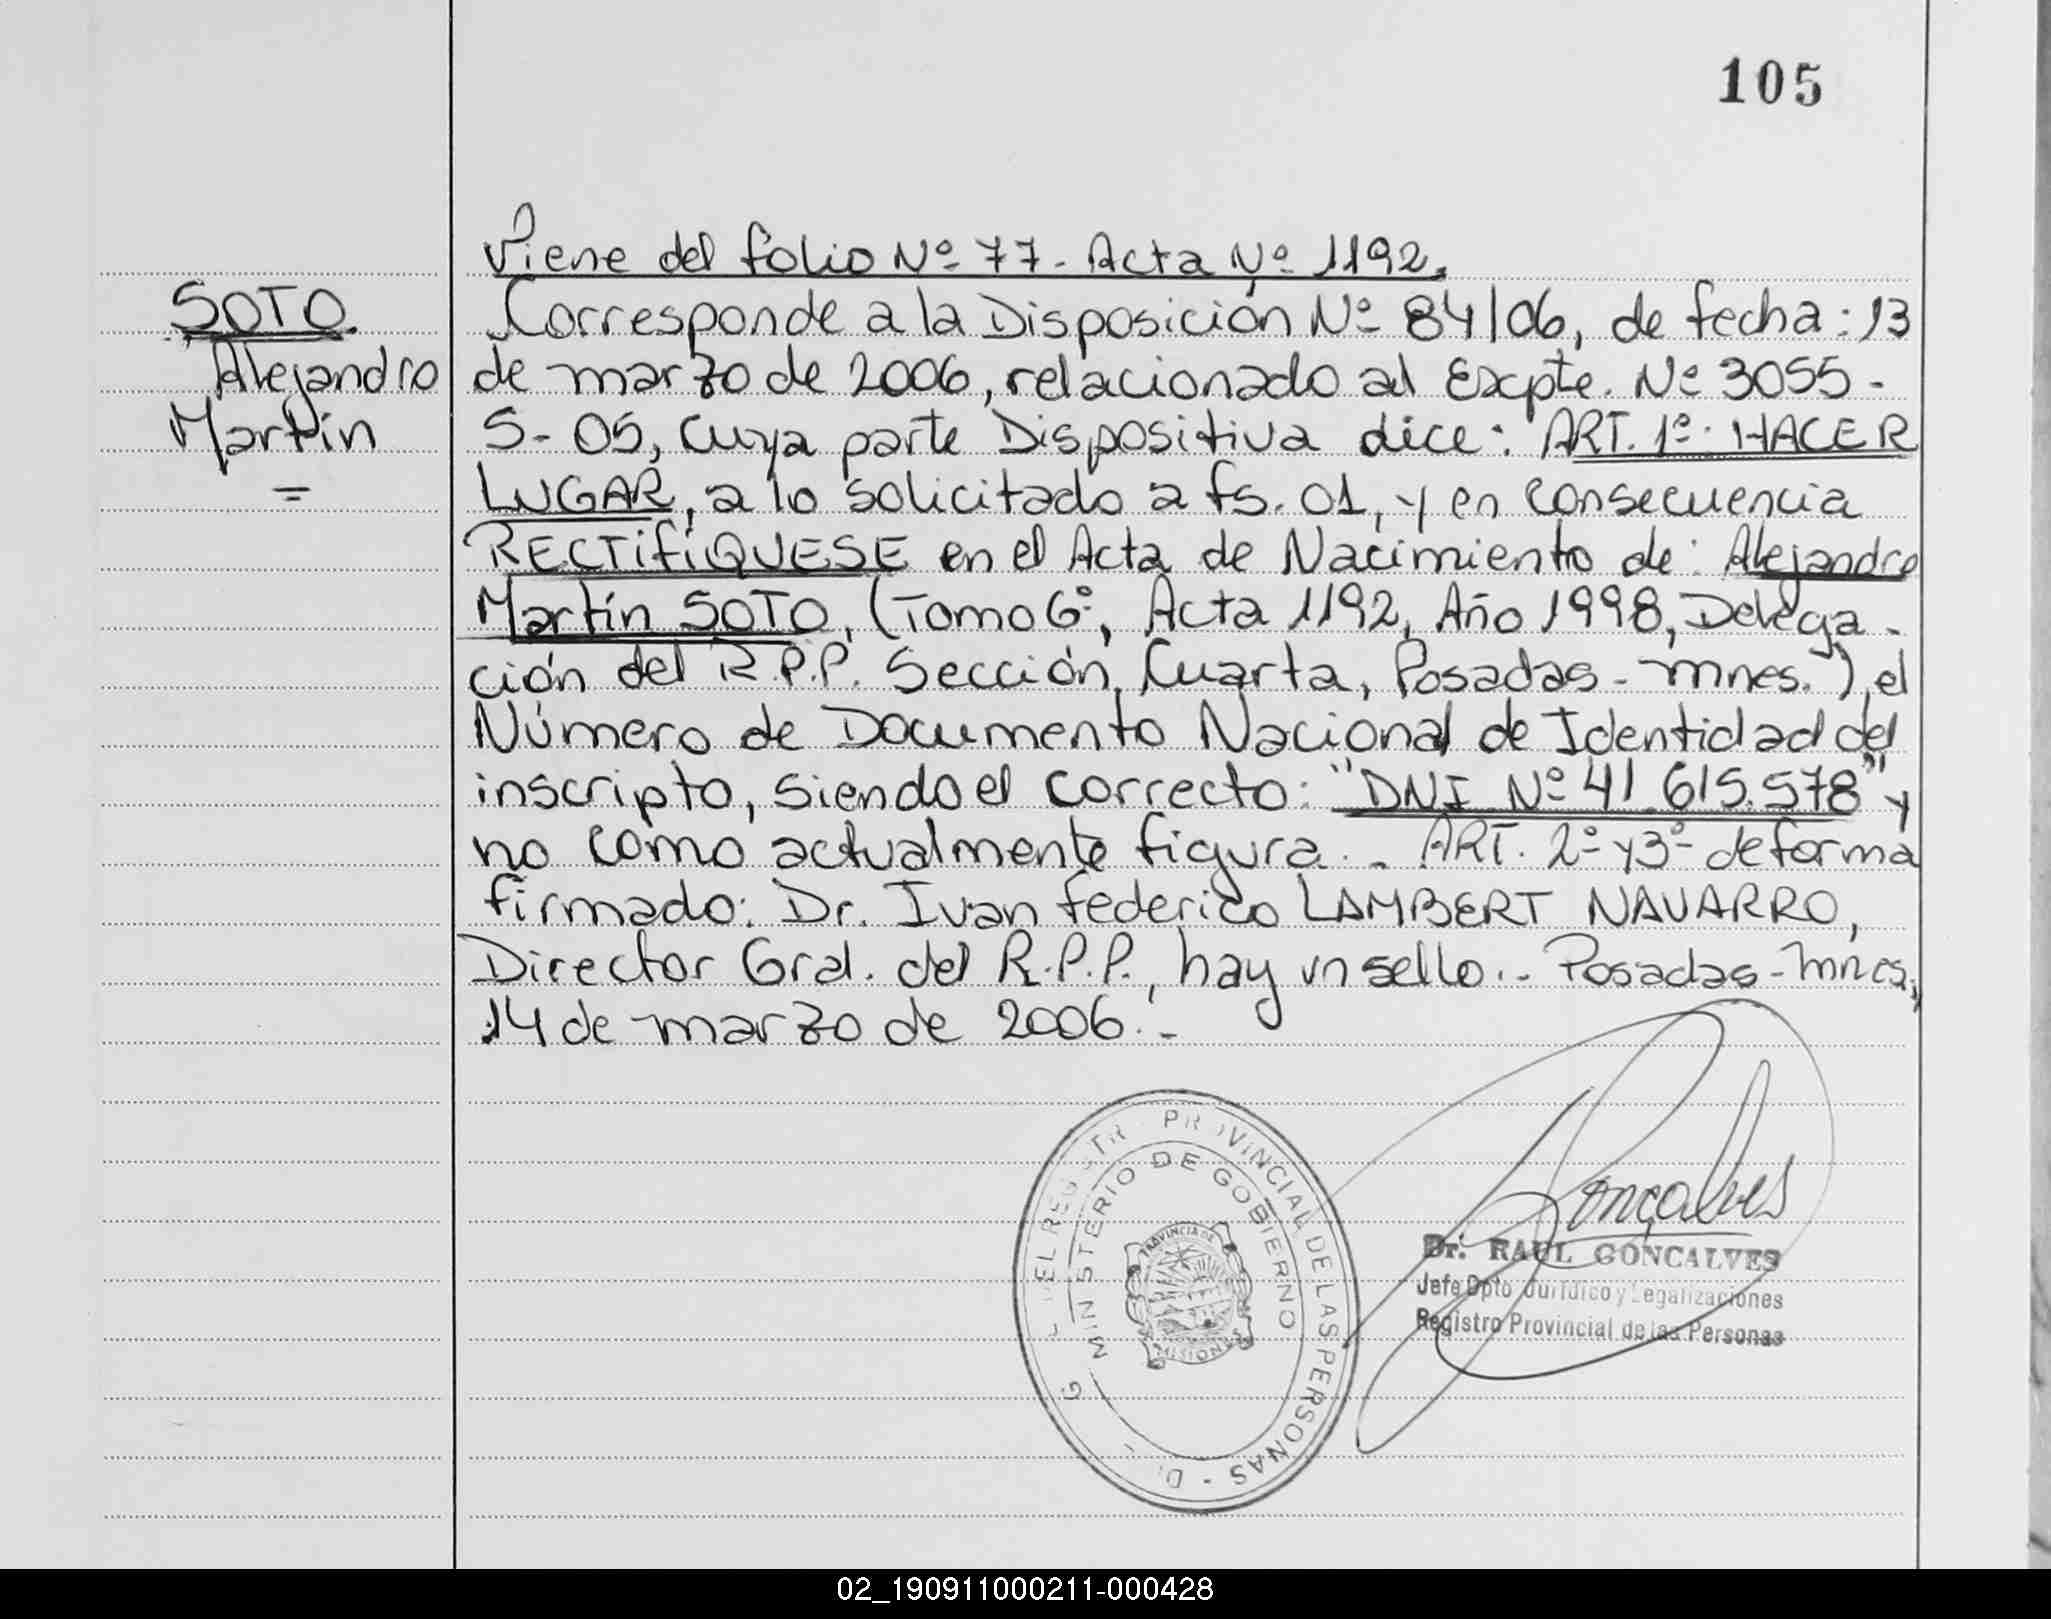 105
Viene del folio Nº 77- Acta Nº 1192.
SOTO
Alejandro
Martín
=
Corresponde a la Disposición Nº 84/06, de fecha: 13
de marzo de 2006, relacionado al Expte. Nº 3055-
S-05, cuya parte Dispositiva dice: ART. 1º: HACER
LUGAR, a lo solicitado a fs. 01, y en consecuencia
RECTIFÍQUESE en el Acta de Nacimiento de: Alejandro
Martín SOTO, (Tomo 6º, Acta 1192, Año 1998, Delega-
ción del R.P.P. Sección Cuarta, Posadas-mnes.), el
Número de Documento Nacional de Identidad del
inscripto, siendo el correcto: "DNI Nº 41.615.578" y
no como actualmente figura.- ART. 2º y 3º de forma
firmado: Dr. Ivan Federico LAMBERT NAVARRO,
Director Gral. del R.P.P., hay un sello.- Posadas-mnes,
14 de marzo de 2006.-
PROVINCIAL DE LAS PERSONAS -
MINISTERIO DE GOBIERNO
PROVINCIA DE
MISIONES
Gonçalves
Dr. RAUL GONCALVES
Jefe Dpto Jurídico y Legalizaciones
Registro Provincial de las Personas
02_190911000211-000428